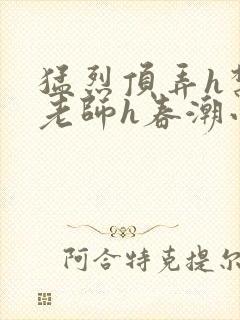 猛烈頂弄h
老師h春潮
阿合特克提尔